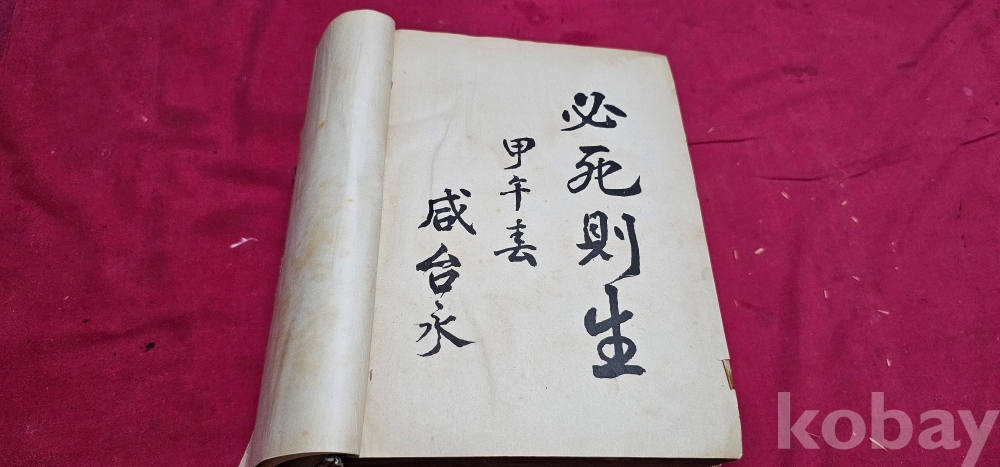 必死則生
甲午春
咸台永
kobay